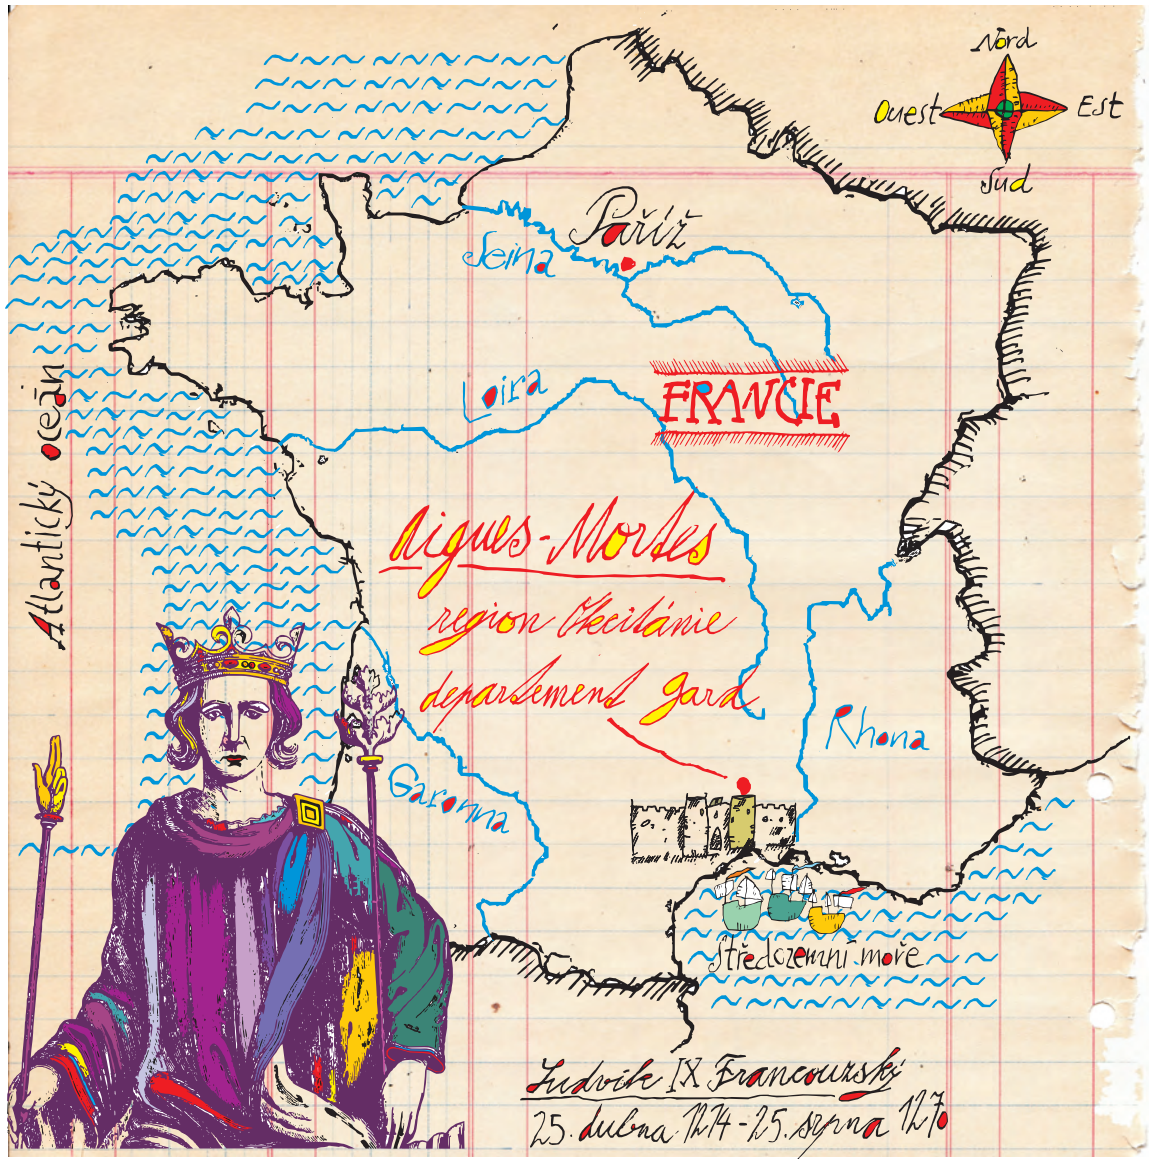 Nord
Ouest
Est
Sud
Paříž
Seina
Loira
FRANCIE
Atlantický oceán
Aigues-Mortes
region Okcitánie
departement gard
Rhona
Garonna
Středozemní moře
Ludvík IX Francouzský
25. dubna 1214 - 25. srpna 1270